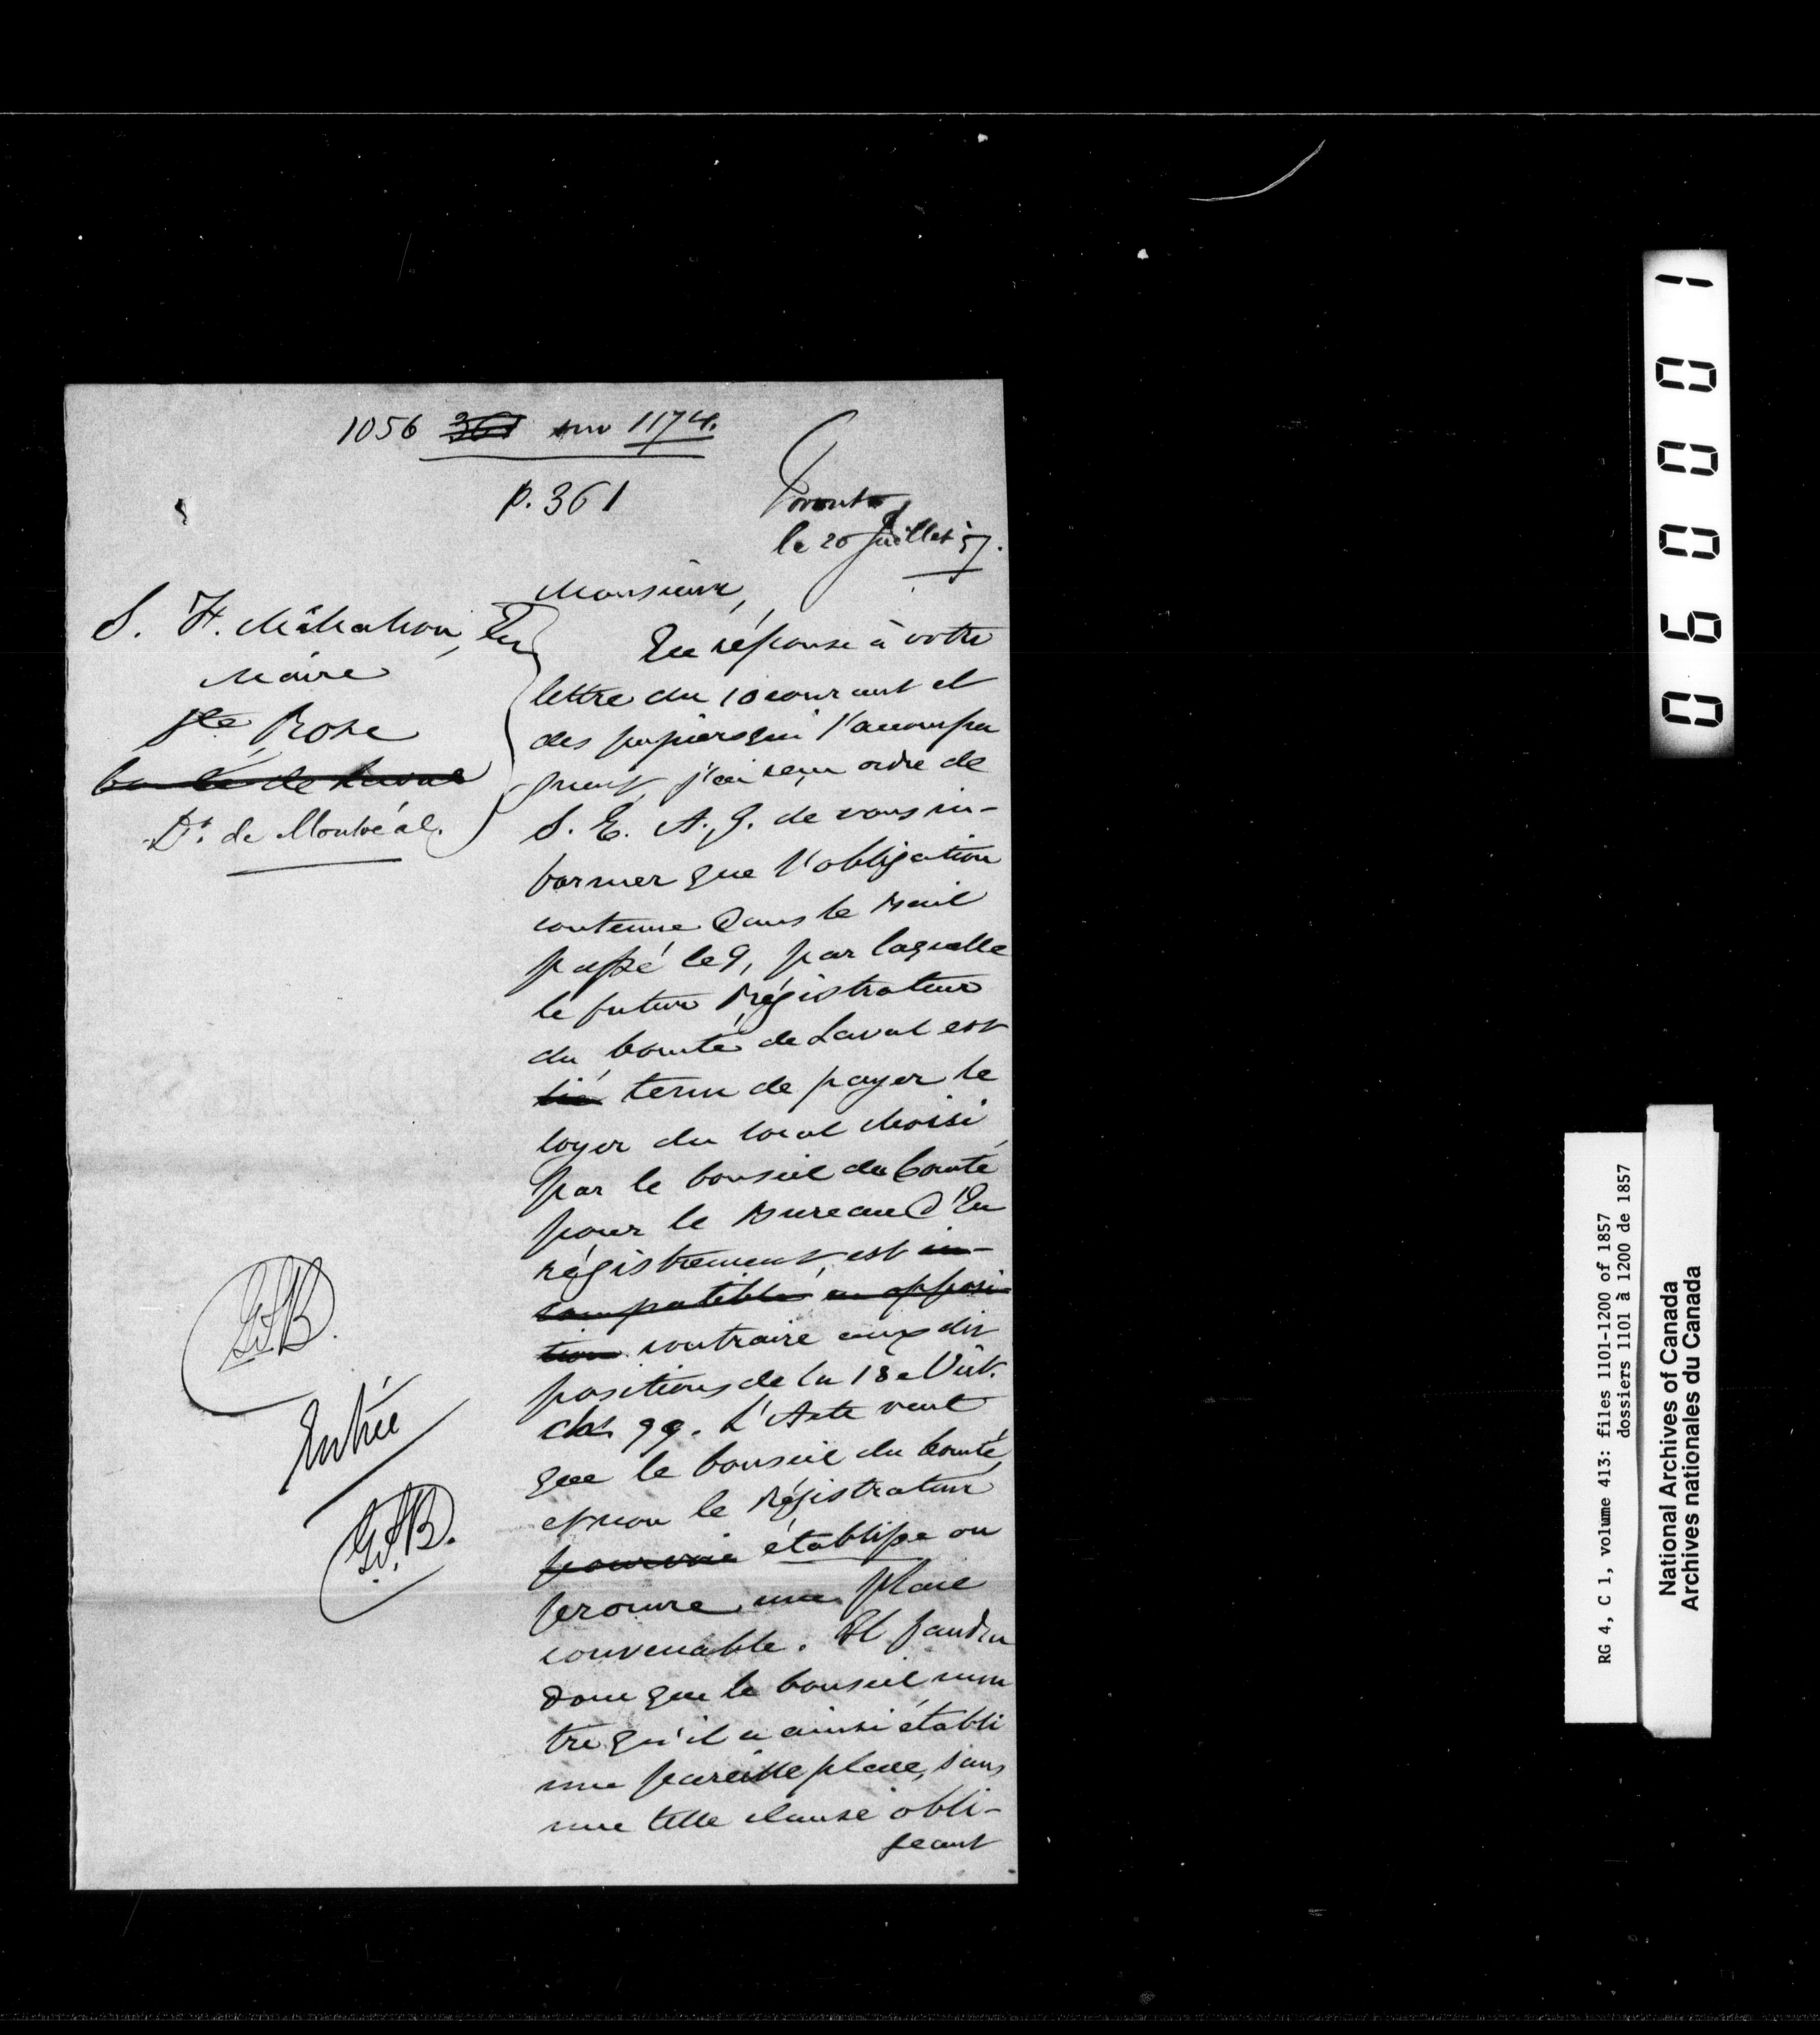 1056 361 sur 1174.
p. 361
Toronto
le 20 Juillet 57.
Monsieur,
S. H. Ecr
Maire
Ste Rose
Comté de Laval
Dt. de Montréal.
En réponse à votre
lettre du 10 courant et
des papiers qui l'accompa
gnent, j'ai reçu ordre de
S. E. A. G. de vous in-
former que l'obligation
contenue dans le Bail
passé le 9, par laquelle
le futur Régistrateur
du Comté de Laval est
lié tenu de payer le
loyer du local choisi
par le Conseil du Comté
pour le Bureau d'En
régistrement, est in-
compatible en opposi-
tion contraire aux dis
positions de la 18e Vict.
ch. 99. L'Acte veut
que le Conseil du Comté,
et non le Régistrateur
pourvoie établisse ou
procure une place
convenable. Il faudra
donc que le Conseil mon
tre qu'il a ainsi établi
une pareille place, sans
une telle clause obli-
geant
Entrée
060001
RG 4, C 1, volume 413: files 1101-1200 of 1857
dossiers 1101 à 1200 de 1857
National Archives of Canada
Archives nationales du Canada